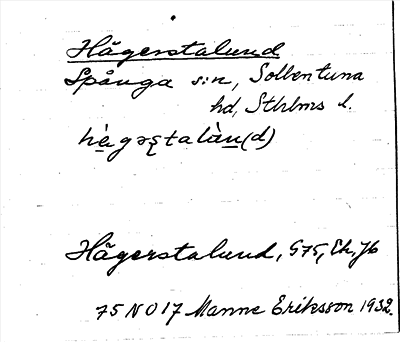 Hägerstalund
Spånga s:n, Sollentuna
hd, Sthlms l.
hè̱gəʂtalàn(d)
Hägerstalund, G75, Ek, Jb
75 NO 17 Manne Eriksson 1932.